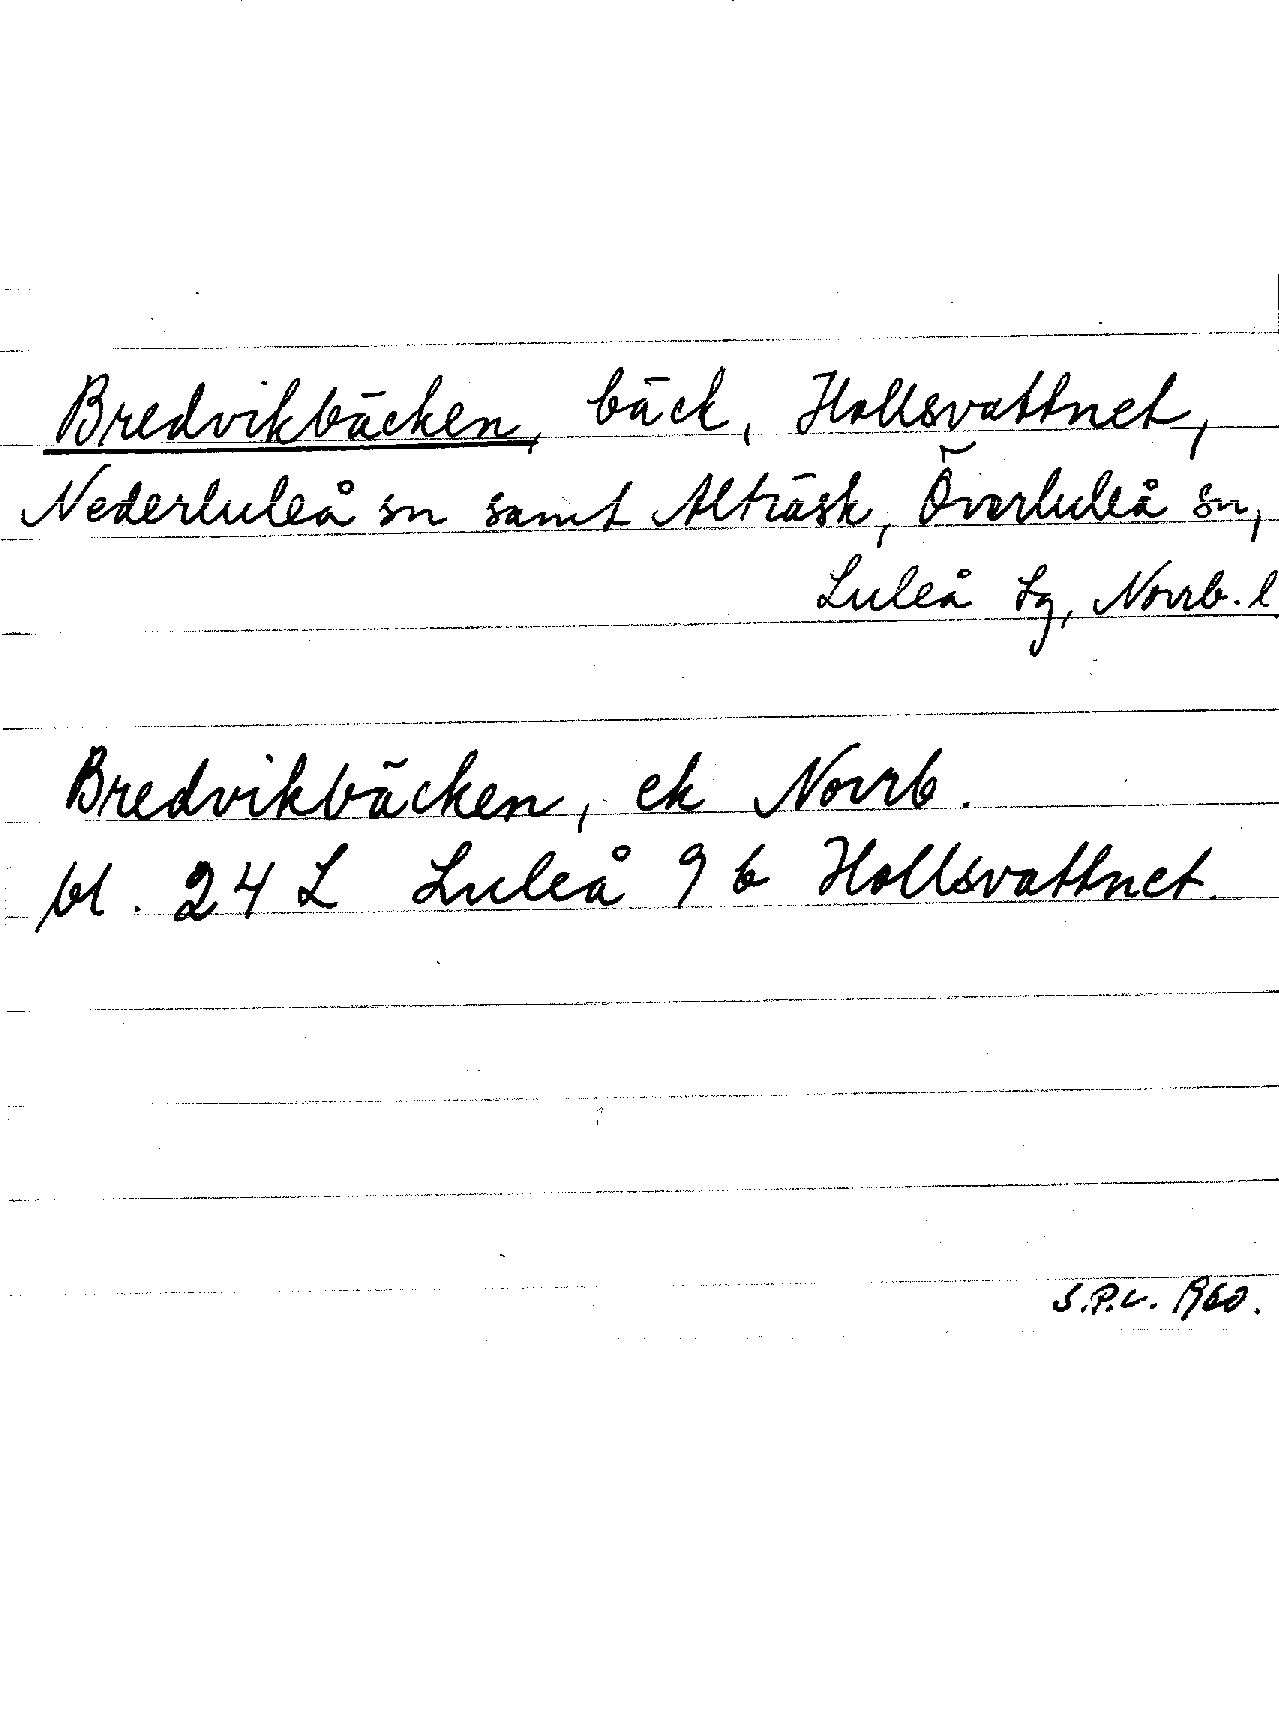 Bredvikbäcken, bäck, Hollsvattnet,
Nederluleå sn samt Alträsk, Överluleå sn,
Luleå tg, Norrb. l
Bredvikbäcken, ek Norrb.
bl. 24 L Luleå 9 b Hollsvattnet.
S.P.L. 1960.